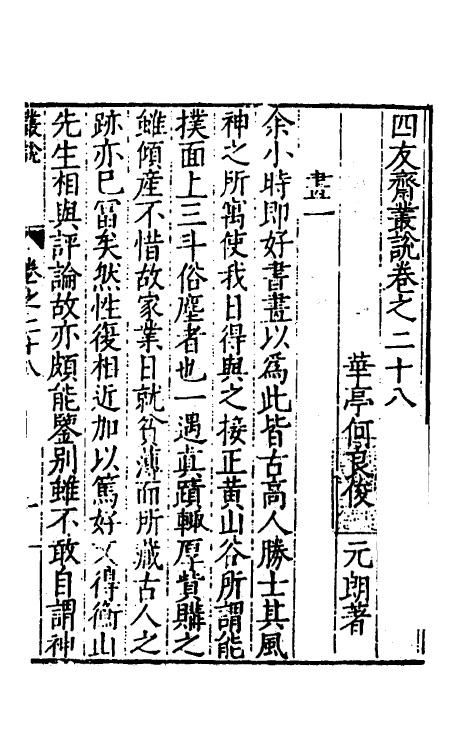 四友齋叢說卷之二十八
華亭何良俊元朗著
畫一
余小時即好書畫以為此皆古高人勝士其風
神之所寓使我日得與之接正黃山谷所謂能
撲面上三斗俗塵者也一遇眞蹟輙厚貲購之
雖傾產不惜故家業日就貧薄而所藏古人之
跡亦已富矣然性復相近加以篤好又得衡山
先生相與評論故亦頗能鑒別雖不敢自謂神
叢說
卷之二十八
一